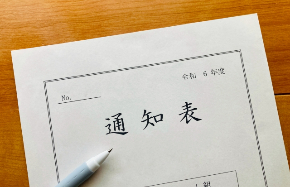 令和 6 年度
No.
通知表